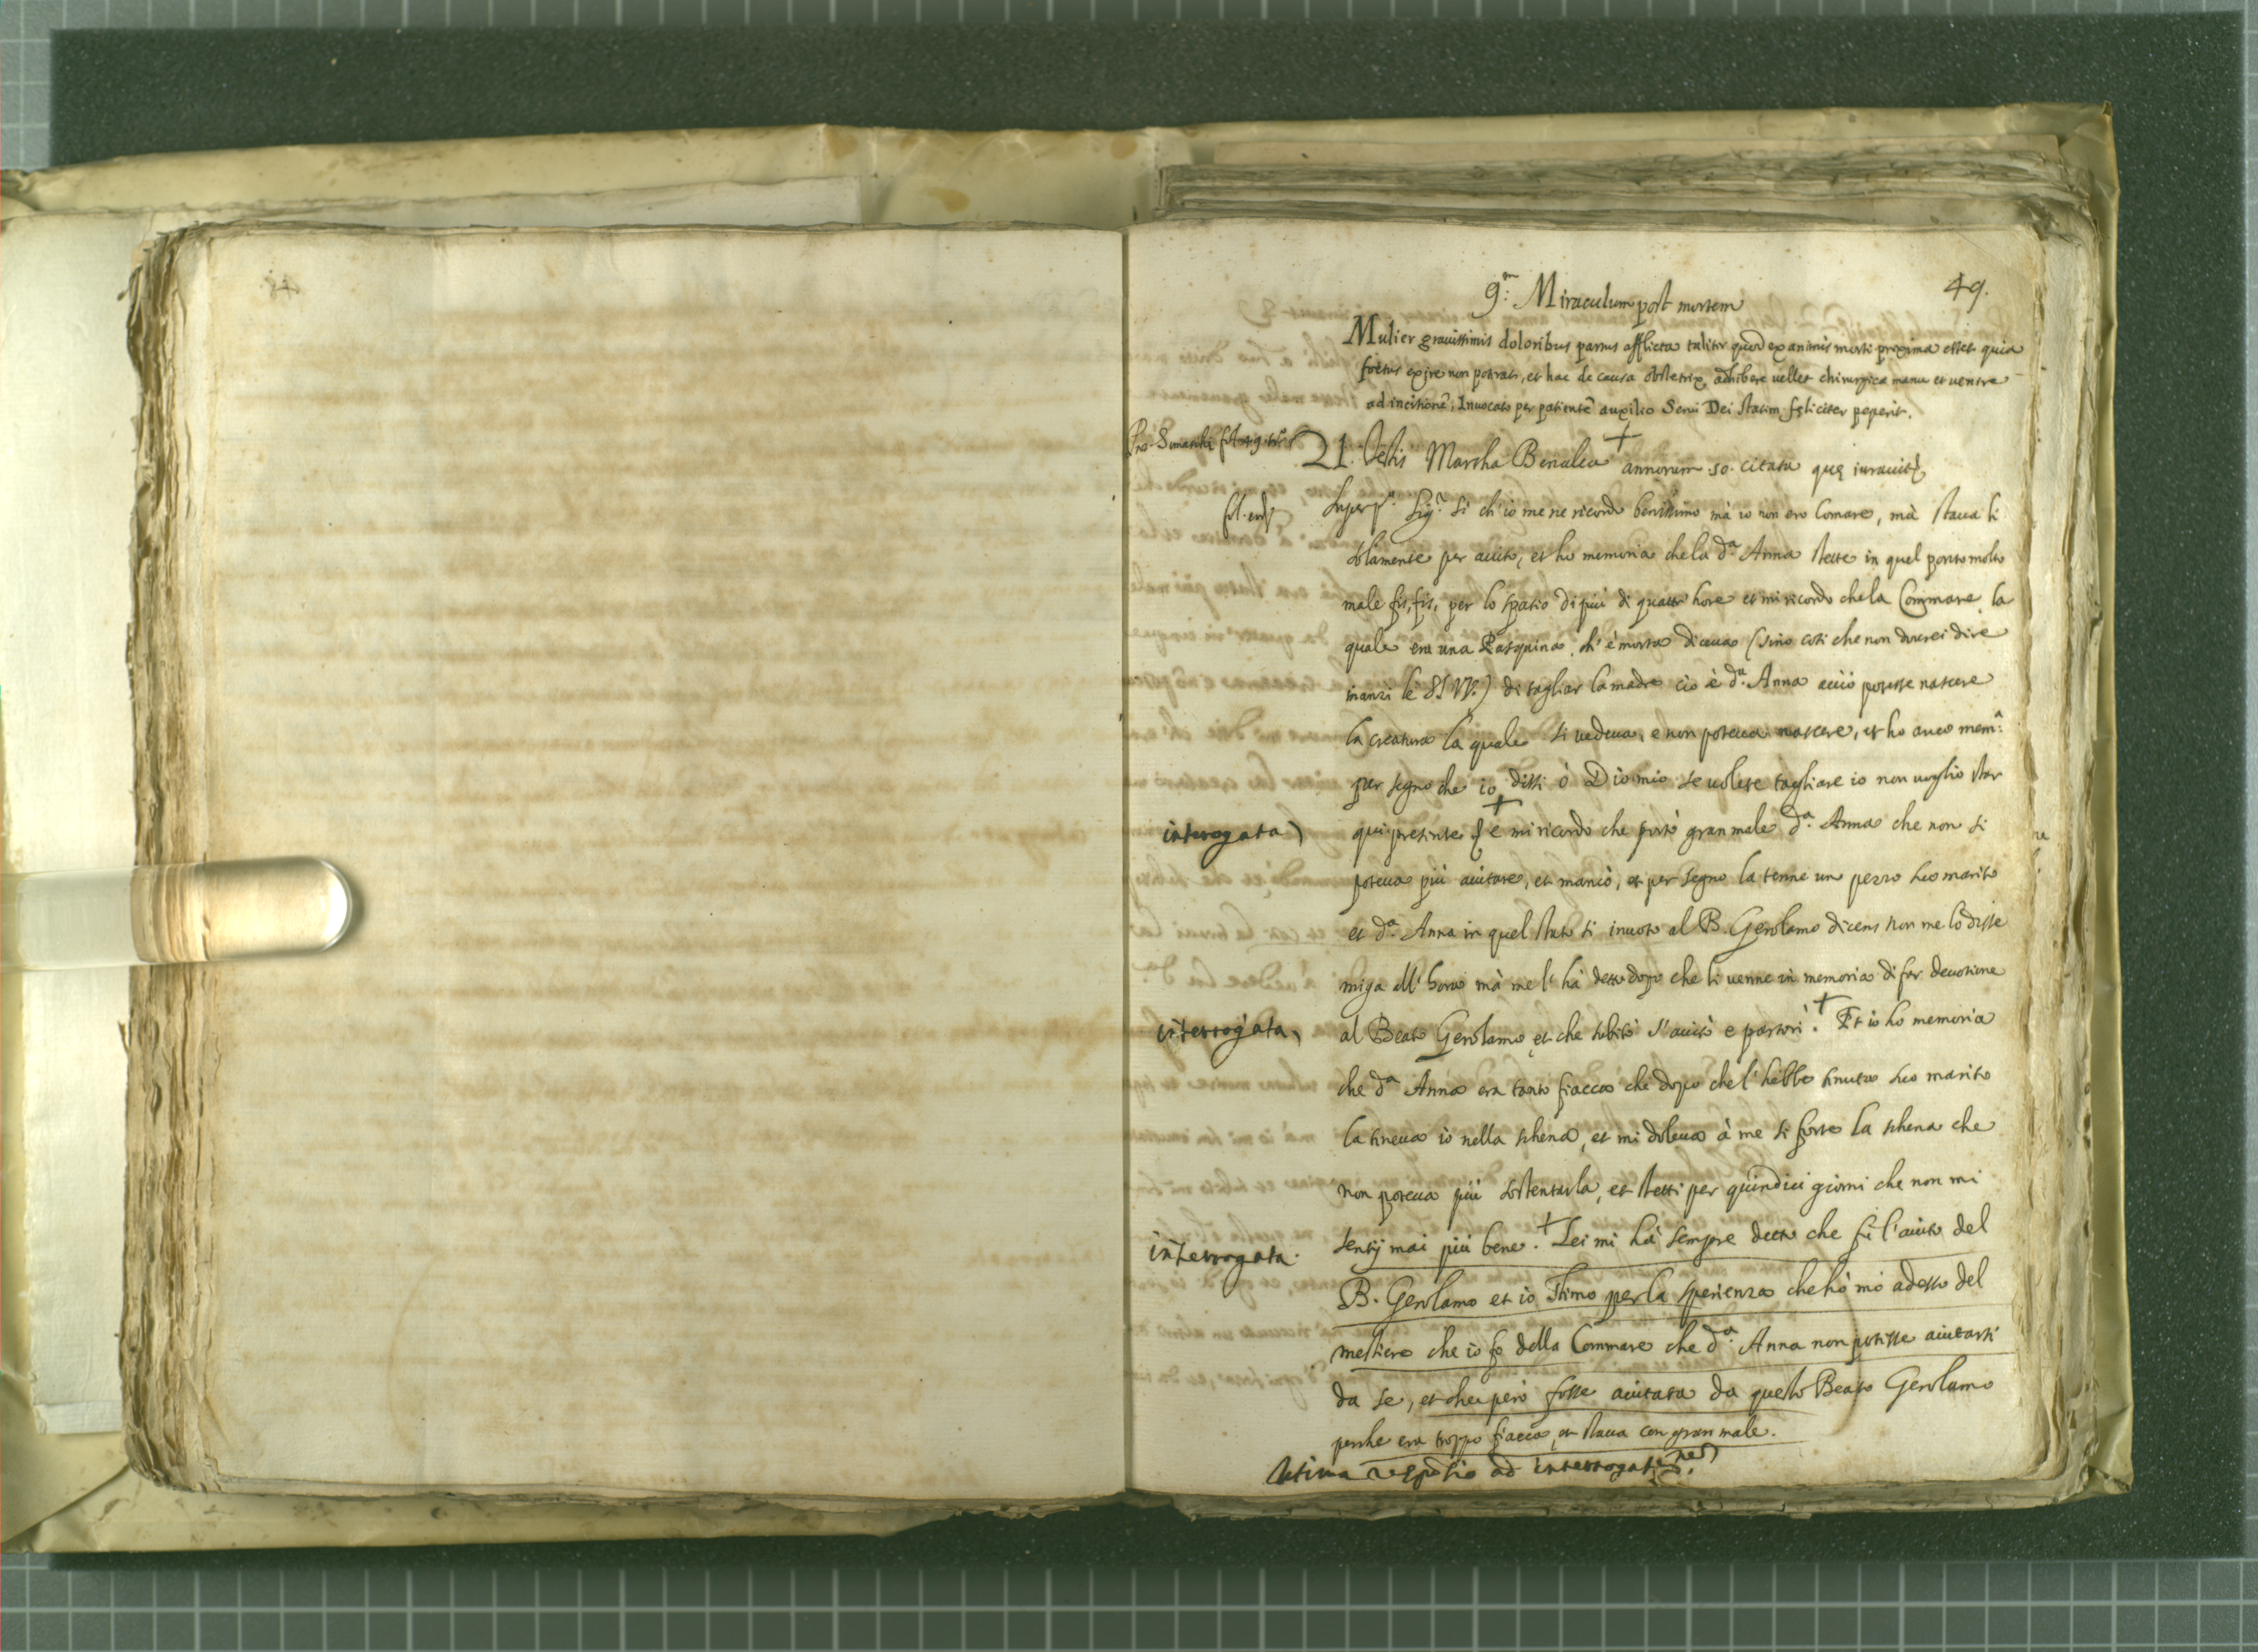 49.
9.m Miraculum post mortem
Mulier grauissimis doloribus partus afflicta taliter quod exanimis morti proxima esset quia
foetus exire non poterat, et hac de causa obstetrix adhibere uellet chirurgica manu et uentre
ad incisionē, Inuocato per patientē auxilio Serui Dei statim feliciter peperit.
21. Testis Martha Benalea + annorum 50. citata que iurauit
Sig.r Si ch'io me ne ricordo benissimo mà io non ero Comare, mà staua li
solamente per aiuto, et ho memoria che la d.a Anna stette in quel parto molto
male fis, fis, per lo spatio di più di quattr' hore et mi ricordo che la Commare la
quale era una Pasquina, ch' è morta diceua (sino cosi che non dourei dire
inanzi le SS. VV.) di tagliar la madre cio è d.a Anna acciò potesse nascere
la creatura la quale si uedeua, e non poteua nascere, et ho anco mem.a
per segno che io dissi ò Dio mio se uolete tagliare io non uoglio star
interogata
qui presente + e mi ricordo che portò gran male d.a Anna che non si
poteua più aiutare, et mancò, et per segno la tenne un pezzo suo marito
et d.a Anna in quel stato si inuotò al B. Gerolamo dicens non me lo disse
miga all' hora mà me l' hà detto dopo che li uenne in memoria di far deuotione
interrogata
al Beato Gerolamo, et che subito s' aiutò e partorì. + Et io ho memoria
che d.a Anna era tanto fiacca che dopo che l' hebbe tenuta suo marito
la teneua io nella schena, et mi doleua à me si forte la schena che
non poteua più sostentarla, et stetti per quindici giorni che non mi
interrogata.
sentij mai più bene. + Lei mi hà sempre detto che fù l'aiuto del
B. Gerolamo et io stimo per la sperienza che hò mò adesso del
mestiero che io fo della Commare che d.a Anna non potesse aiutarsi
da se, et che però fosse aiutata da questo Beato Gerolamo
perche era troppo fiacca, et staua con gran male.
Ultima respōsio ad interrogationes